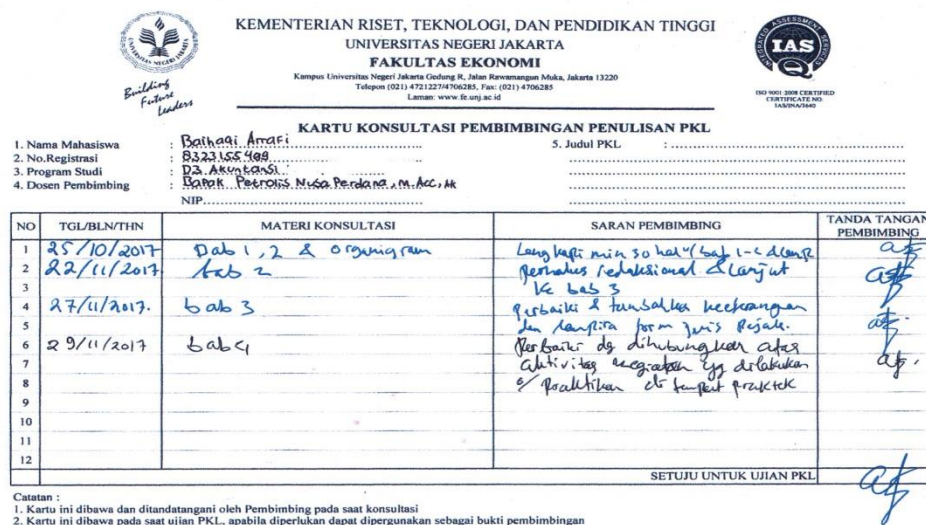 KEMENTERIAN RISET, TEKNOLOGI, DAN PENDIDIKAN TINGGI
UNIVERSITAS NEGERI JAKARTA
FAKULTAS EKONOMI
Kampus Universitas Negeri Jakarta Gedung R, Jalan Rawamangun Muka, Jakarta 13220
Telepon (021) 4721227/4706285, Fax: (021) 4706285
Laman: www.fe.unj.ac.id
UNIVERSITAS NEGERI JAKARTA
Building Future Leaders
INTEGRATED ASSESSMENT SERVICES
IAS
ISO 9001:2008 CERTIFIED
CERTIFICATE NO.
IAS/INA/3640
KARTU KONSULTASI PEMBIMBINGAN PENULISAN PKL
1. Nama Mahasiswa : Baihaqi Arrafi
2. No.Registrasi : 8323155409
3. Program Studi : D3 Akuntansi
4. Dosen Pembimbing : Bapak Petrolis Nusa Perdana, M.Acc, Ak
NIP
5. Judul PKL :
NO TGL/BLN/THN MATERI KONSULTASI SARAN PEMBIMBING TANDA TANGAN PEMBIMBING
1 25/10/2017 Bab 1, 2 & organigram Lengkapi min 30 hal bab 1-
2 22/11/2017 bab 2 perhalus redaksional & lanjut
3 ke bab 3
4 27/11/2017. bab 3 Perbaiki & tambahkan keterangan
5 dan form jenis Pajak.
6 29/11/2017 bab 4 Perbaiki dg dihubungkan atas
7 aktivitas kegiatan yg dilakukan
8 o/ Praktikan di tempat praktek
9
10
11
12
SETUJU UNTUK UJIAN PKL
Catatan :
1. Kartu ini dibawa dan ditandatangani oleh Pembimbing pada saat konsultasi
2. Kartu ini dibawa pada saat ujian PKL, apabila diperlukan dapat dipergunakan sebagai bukti pembimbingan